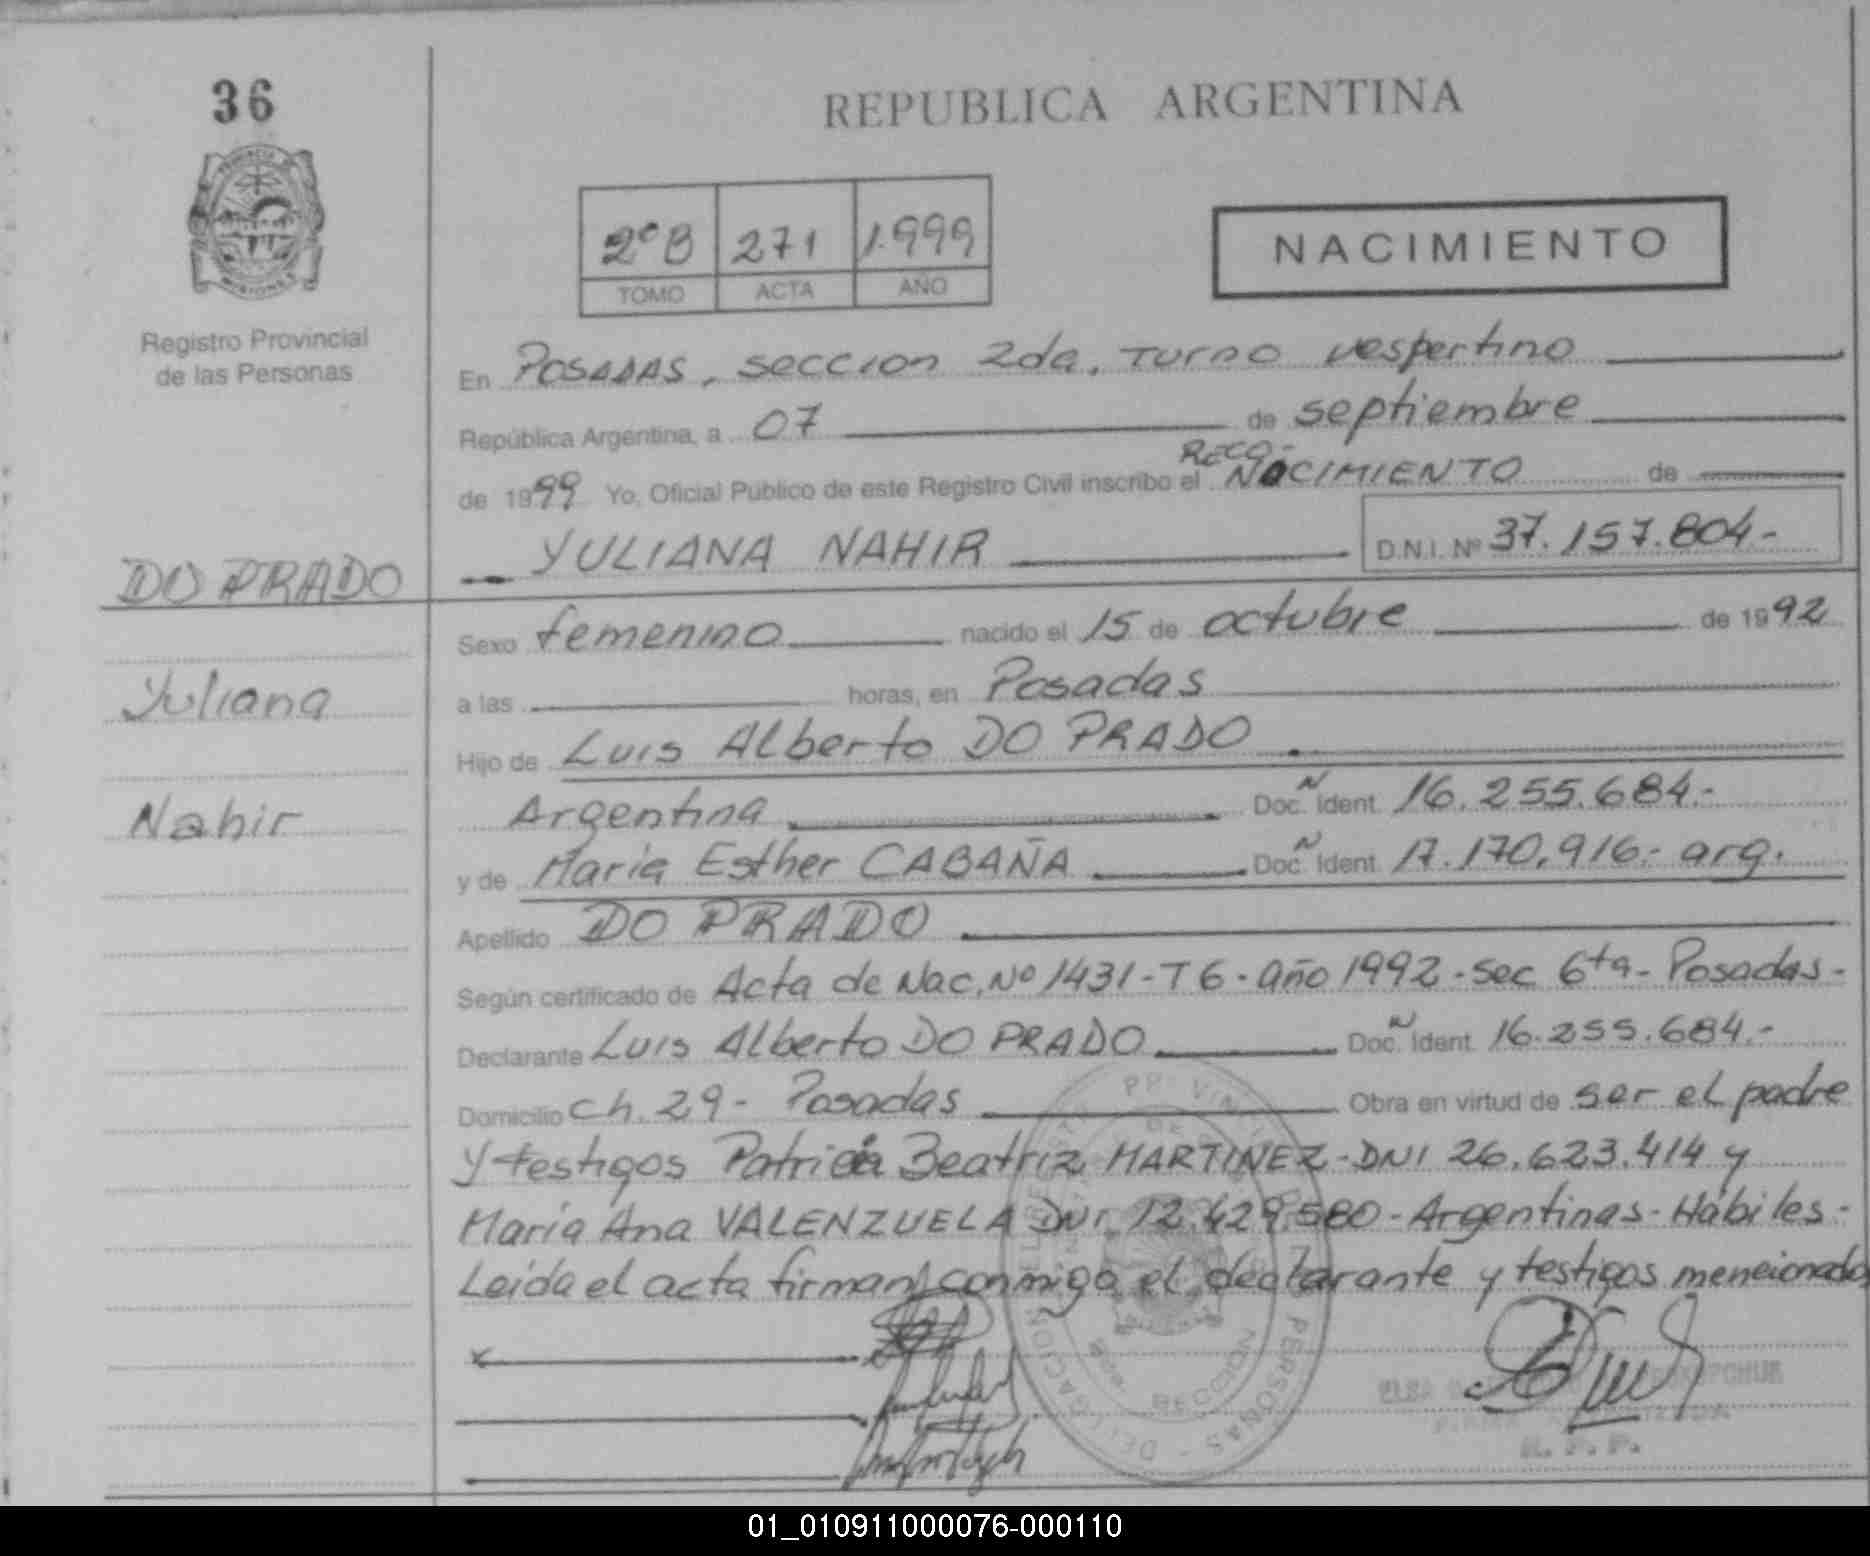 36
REPUBLICA ARGENTINA
2º B 271 1.999
TOMO ACTA AÑO
NACIMIENTO
Registro Provincial
de las Personas
En POSADAS, seccion 2da, Turno vespertino
República Argentina, a 07 de septiembre
RECO-
de 1999 Yo, Oficial Público de este Registro Civil inscribo el NOCIMIENTO de
DO PRADO
YULIANA NAHIR D.N.I. Nº 37.157.804-
Sexo femenino nacido el 15 de octubre de 1992
Yuliana
a las horas, en Posadas
Hijo de Luis Alberto DO PRADO
Nahir
Argentina Doc. Ident. 16.255.684.-
y de María Esther CABAÑA Doc. Ident. 17.170.916.- arg.
Apellido DO PRADO
Según certificado de Acta de Nac. Nº 1431-T 6-año 1992-sec 6ta-Posadas-
Declarante Luis Alberto DO PRADO Doc. Ident. 16.255.684.-
Domicilio Ch. 29- Posadas Obra en virtud de ser el padre
y testigos Patricia Beatriz MARTINEZ-DNI 26.623.414 y
María Ana VALENZUELA DNI 12.429.580-Argentinas-Hábiles-
Leída el acta firman conmigo el declarante y testigos mencionados
01_010911000076-000110